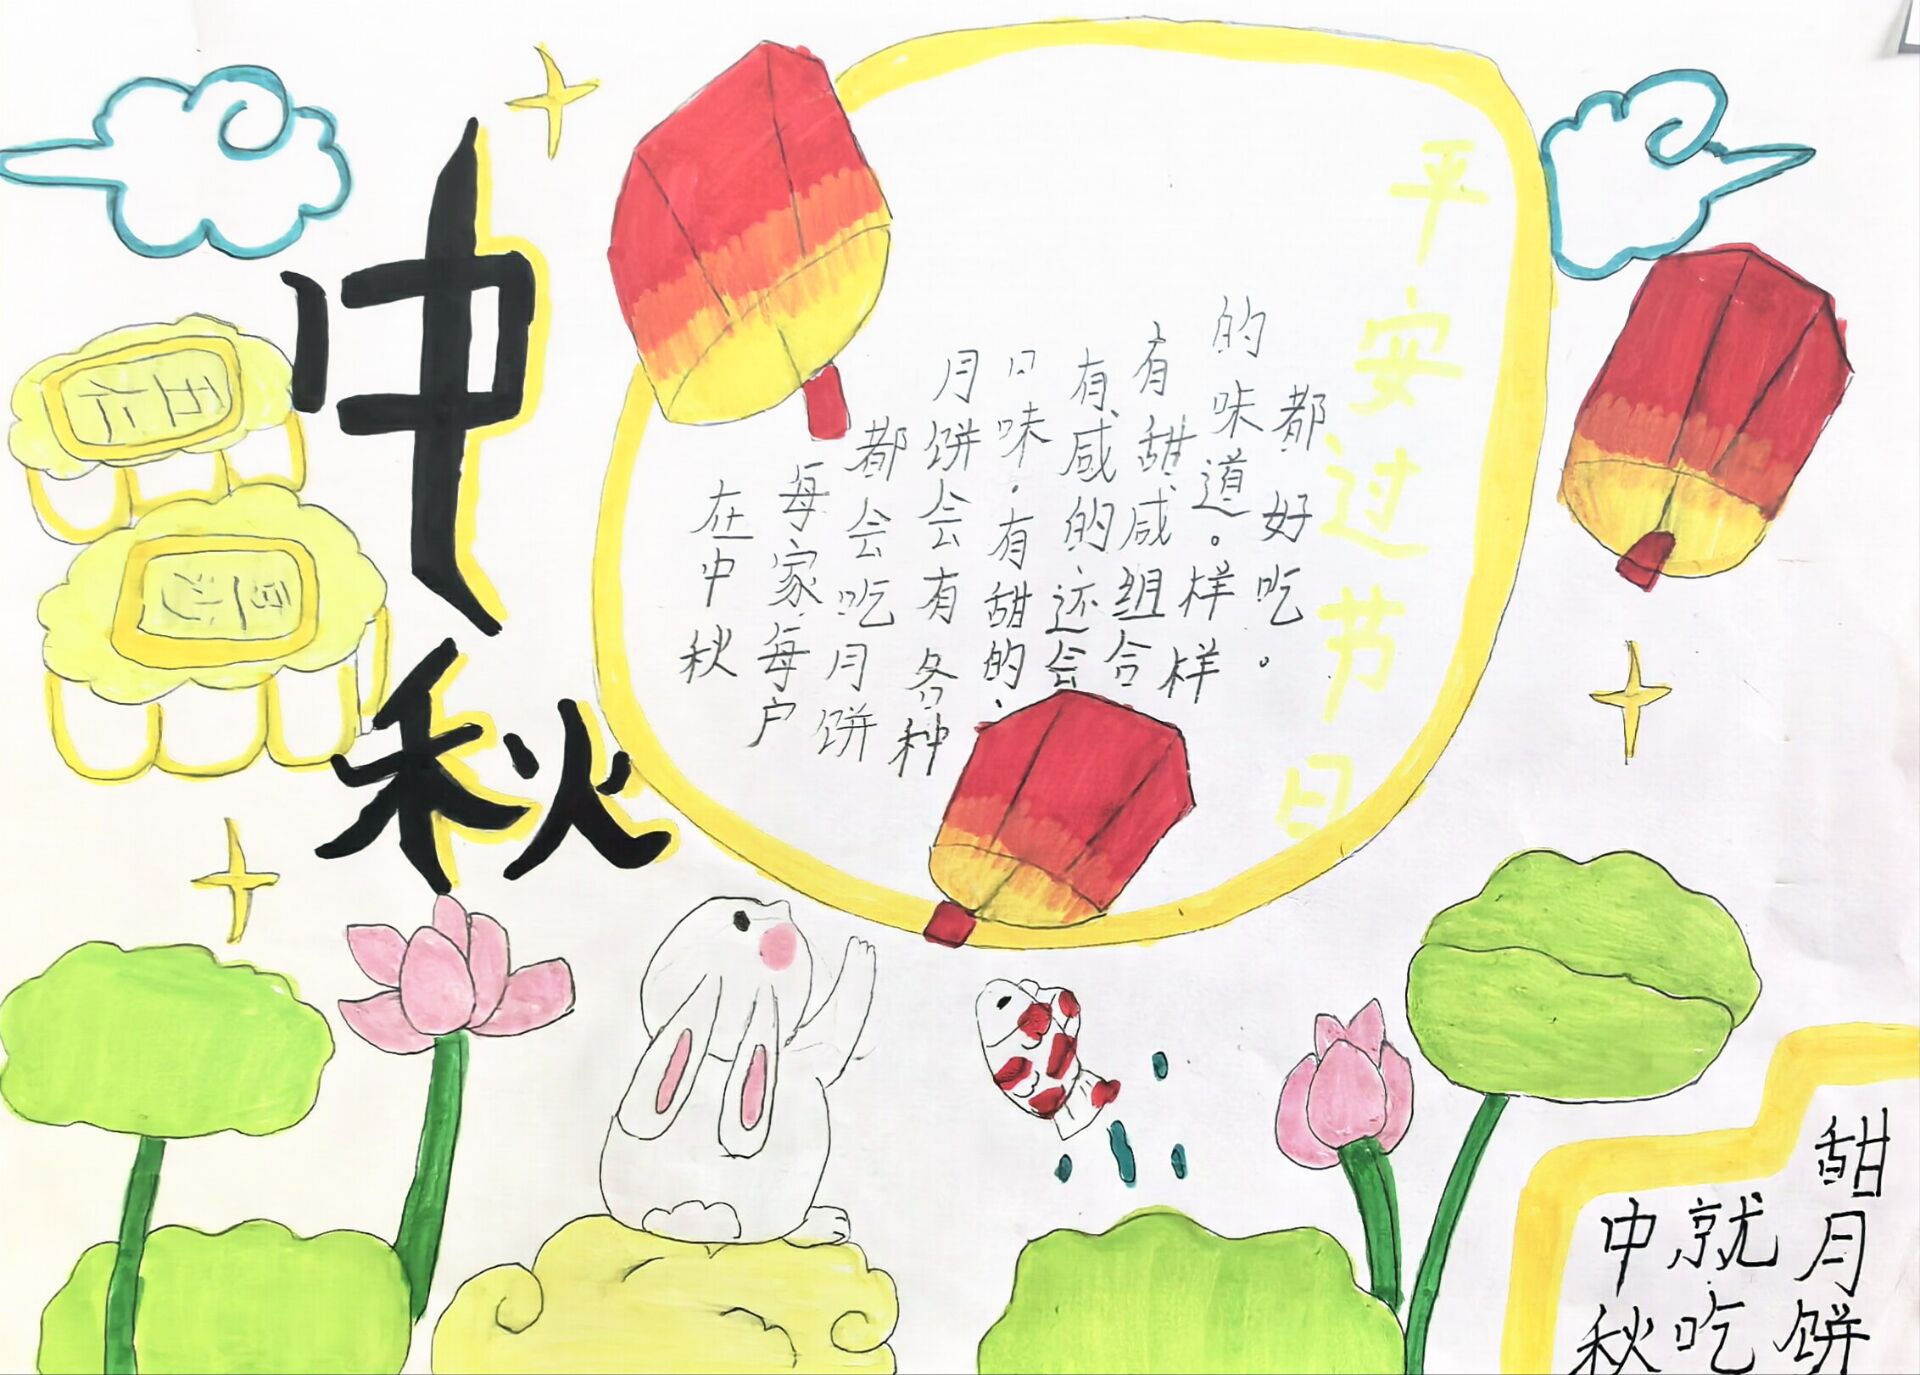 中秋
五仁
在中秋
每家每户
都会吃月饼
月饼会有各种
口味.有甜的、
有咸的还会
有甜咸组合
的味道。样样
都好吃。
平安过节日
中秋
就吃
甜月饼